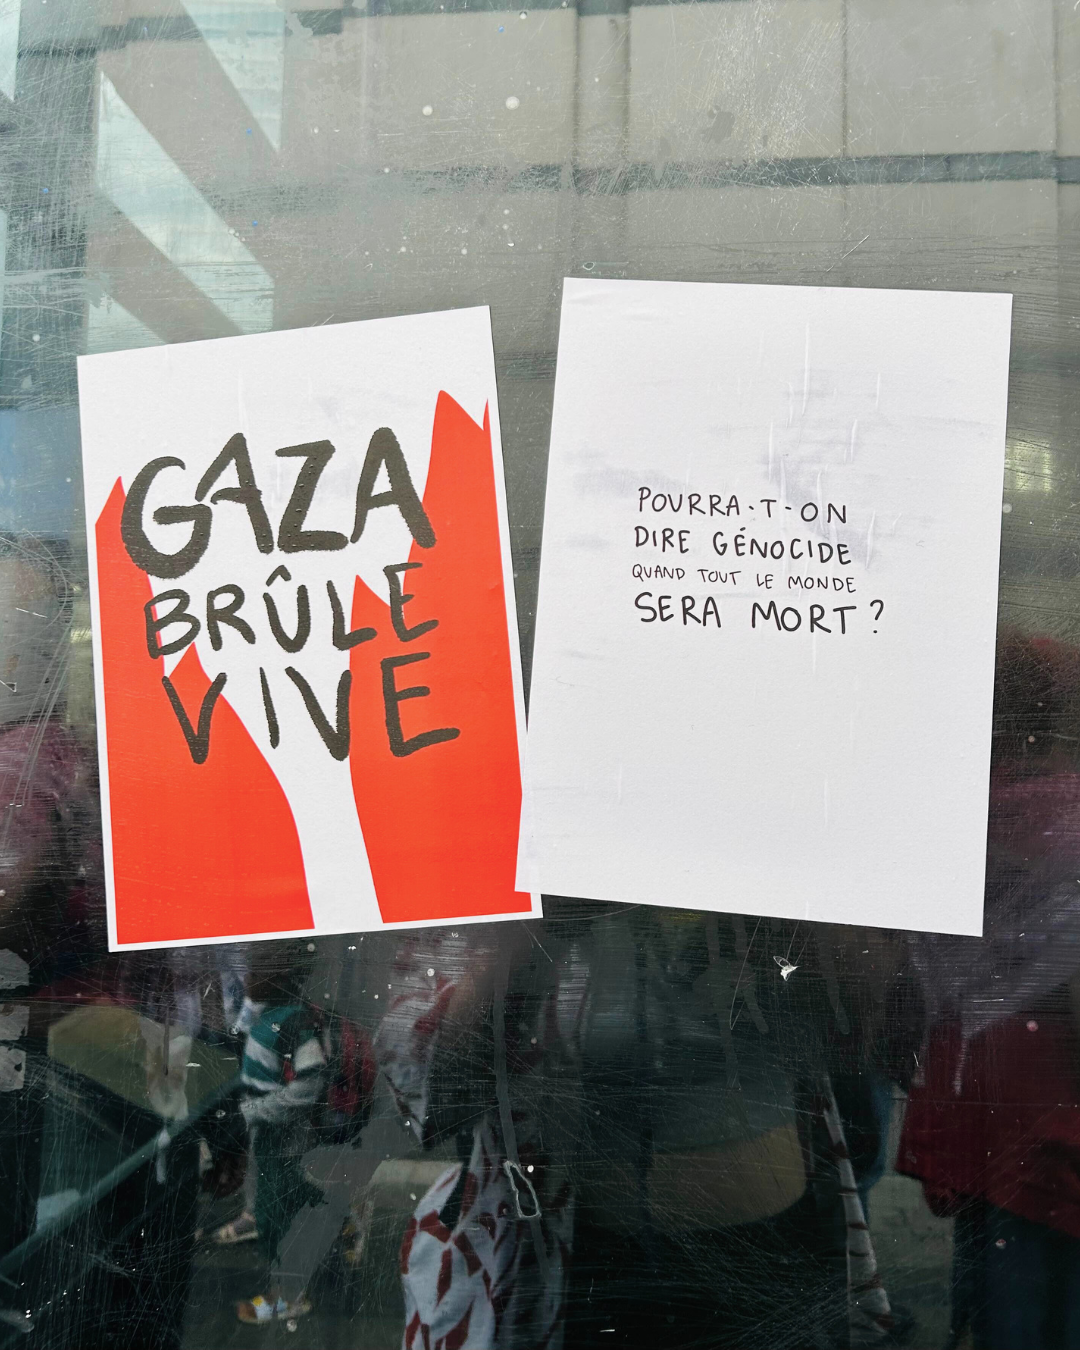 GAZA
BRÛLE
VIVE
POURRA-T-ON
DIRE GÉNOCIDE
QUAND TOUT LE MONDE
SERA MORT ?